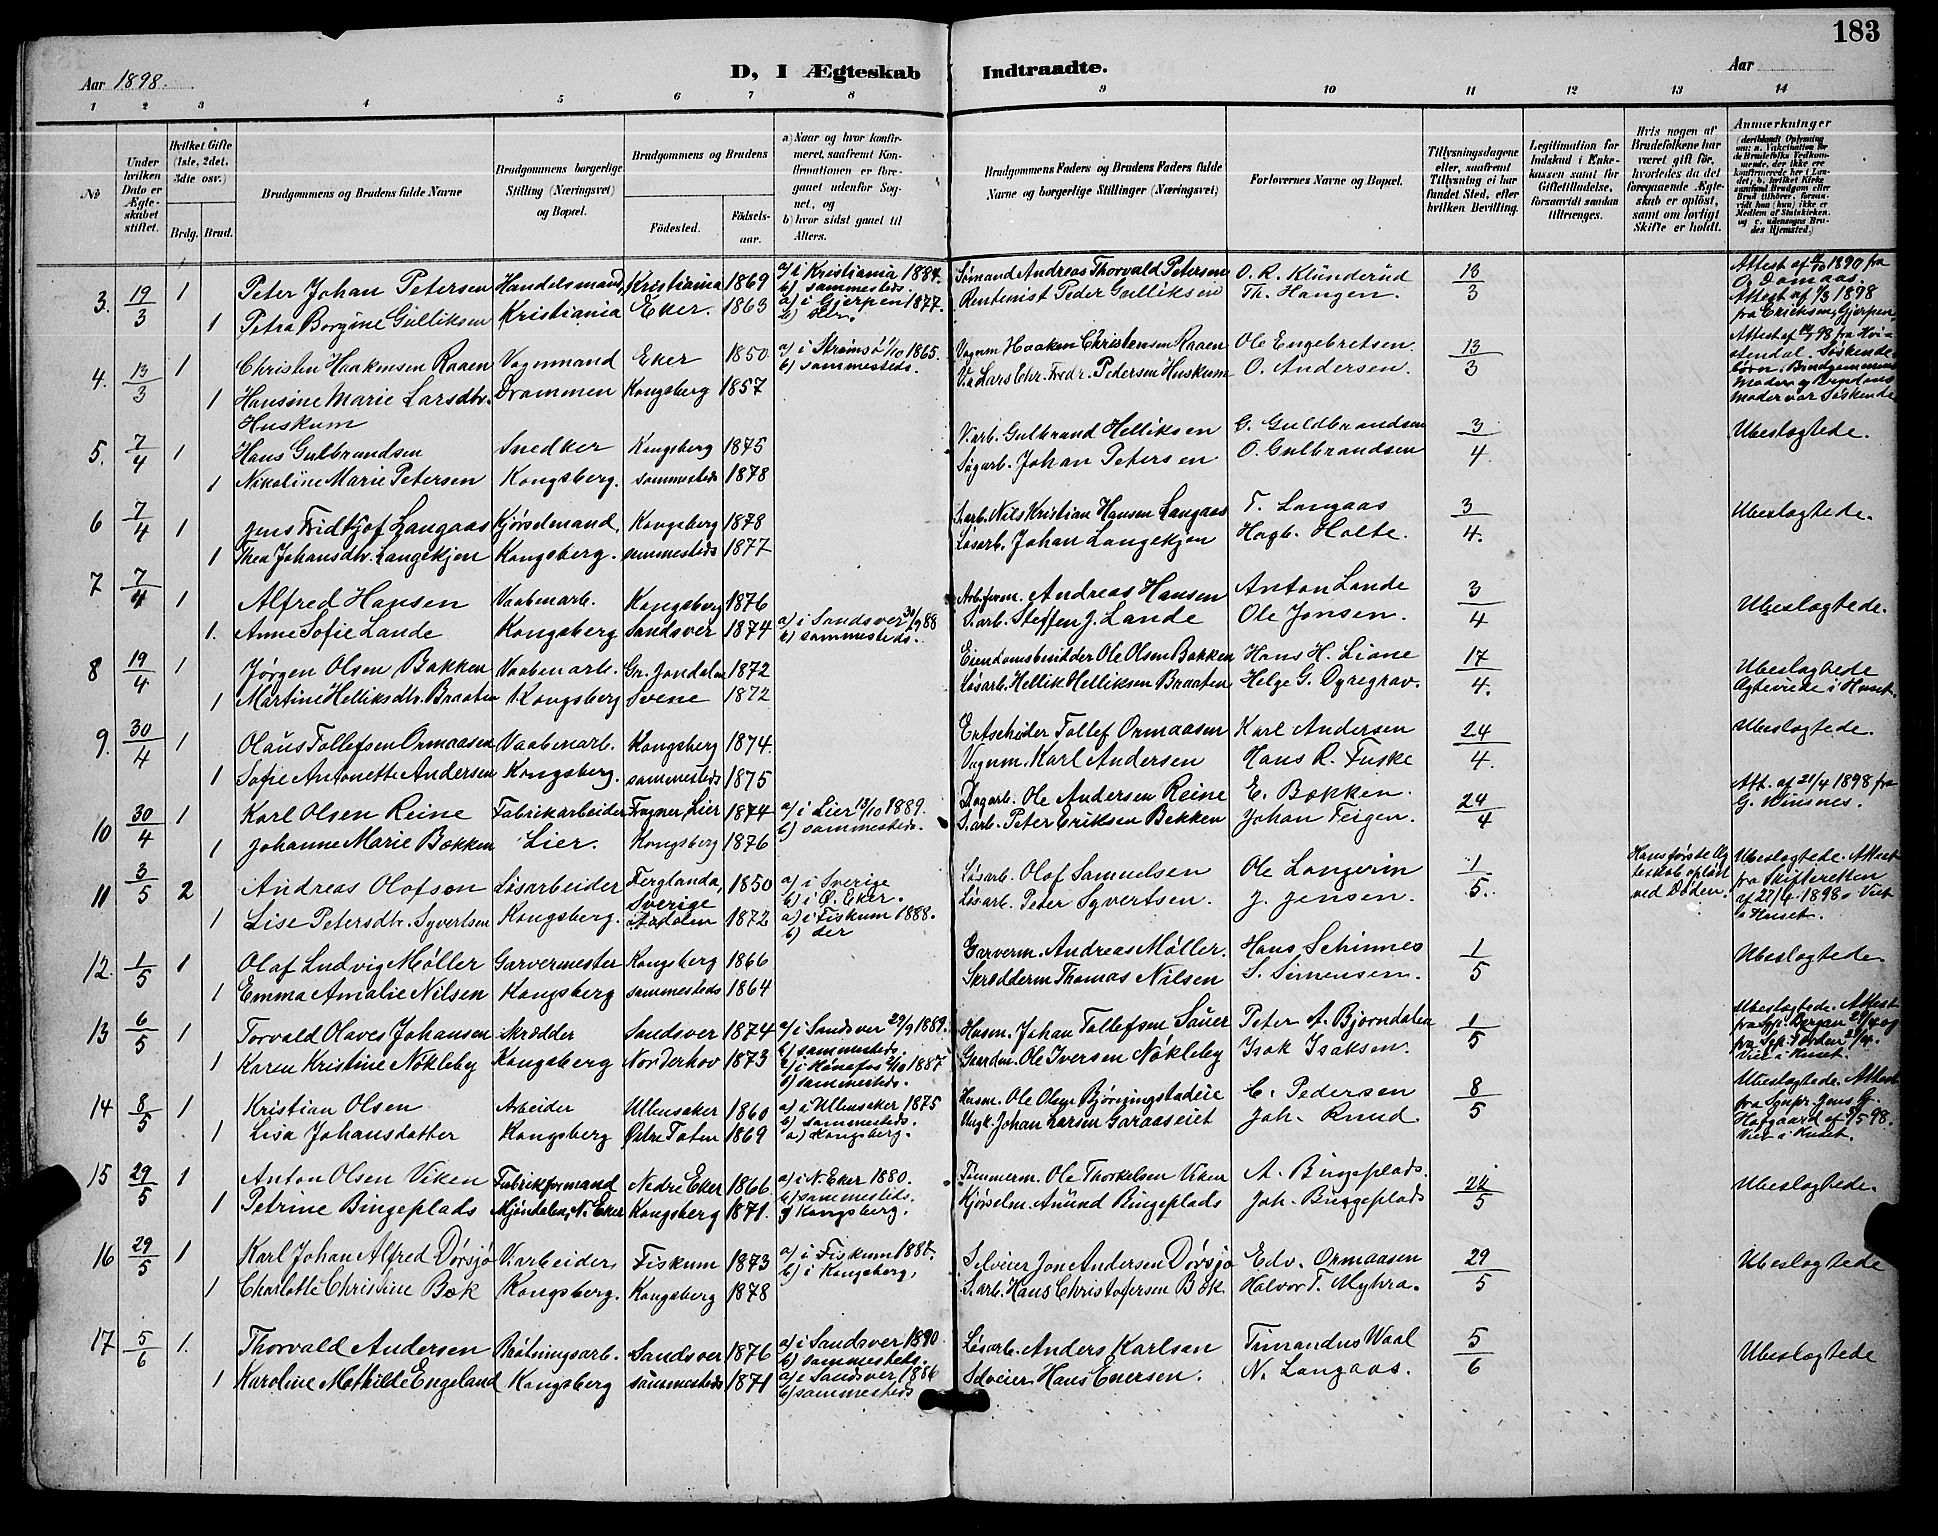 183
Aar 1898.
D, I Ægteskab Indtraadte.
Aar
1 2 3 4 5 6 7 8 9 10 11 12 13 14
No
Under hvilken Dato er Ægteskabet stiftet.
Hvilket Gifte (1ste, 2det, 3die osv.)
Brdg. Brud.
Brudgommens og Brudens fulde Navne
Brudgommens borgerlige Stilling (Næringsvei) og Bopæl.
Brudgommens og Brudens
Fødested.
Fødselsaar.
a) Naar og hvor konfirmeret, saafremt Konfirmationen er foregaaet udenfor Sognet, og
b) hvor sidst gaaet til Alters.
Brudgommens Faders og Brudens Faders fulde Navne og borgerlige Stillinger (Næringsvei)
Forlovernes Navne og Bopæl.
Tillysningsdagene eller, saafremt Tillysning ei har fundet Sted, efter hvilken Bevilling.
Legitimation for Indskud i Enkekassen samt for Giftetilladelse, forsaavidt saadan tiltrænges.
Hvis nogen af Brudefolkene har været gift før, hvorledes da det foregaaende Ægteskab er opløst, samt om lovligt Skifte er holdt.
Anmærkninger
3. 19/3 1 Peter Johan Petersen Handelsmand, Kristiania 1869 a) i Kristiania 1884. b) sammesteds. Sømand Andreas Thorvald Petersen O. R. Klunderud 13/3 Attest af 1890 fra
1 Petra Borgine Gulliksen Kristiania Eker. 1863 a) i Gjerpen 1877. b) Rentenist Peder Gulliksen Th. Haugen. Attest af 1/3 1898 fra Eriksen, Gjerpen
4. 13/3 1 Christen Haakensen Raaen Vognmand Eker 1850 a) i Strømsø 1/10 1865. b) sammesteds. Vognm Haaken Christensen Raaen Ole Engebretsen. 13/3
1 Hansine Marie Larsdtr. Huskum Drammen Kongsberg 1857 V.a Lars Chr. Fredr. Pedersen Huskum O. Andersen. Søskendebørn. Brudgommens Moder og Brudens Moder var Søskende
5. 7/4 1 Hans Gulbrandsen Snedker Kongsberg 1875 V.arb. Gulbrand Helliksen G. Guldbrandsen 3/4. Ubeslægtede.
1 Nikoline Marie Petersen Kongsberg. sammesteds 1878 Sagarb. Johan Petersen O. Gulbrandsen
6 7/4 1 Jens Fridtjof Langaas Kjørselmand, Kongsberg 1878 S.arb. Nils Kristian Hansen Langaas T. Langaas 3/4. Ubeslægtede.
1 Thea Johansdtr. Langekjen Kongsberg. sammesteds 1877 Løsarb. Johan Langekjen Hagb. Holte.
7 7/4 1 Alfred Hansen Vaabenarb. Kongsberg 1876 Arb.form. Andreas Hansen Anton Lande 3/4 Ubeslægtede.
1. Anne Sofie Lande Kongsberg Sandsver 1874 a) i Sandsver 30/9 88 b) sammesteds. S.arb. Steffen J. Lande Ole Jonsen.
8 19/4 1 Jørgen Olsen Bakken Vaabenarb. Gr. Jondalen 1872 Eiendomsbesidder Ole Olsen Bakken Hans H. Liane 17/4. Ubeslægtede
1 Martine Helliksdtr. Braaten Kongsberg Svene 1872 Løsarb. Hellik Helliksen Braaten Helge G. Ogregrav. Ægteviede i Huset.
9. 30/4 1 Olaus Tollefsen Ormaasen Vaabenarb. Kongsberg 1874. Ertscheider Tollef Ormaasen Karl Andersen 24/4. Ubeslægtede.
1 Sofie Antonette Andersen Kongsberg. sammesteds 1875 Vognm. Karl Andersen Hans R. Fuske
10 30/4 1 Karl Olsen Reine Fabrikarbeider Fragner, Lier 1874 a) i Lier 13/10 1889. b) sammesteds. Dagarb. Ole Andersen Reine E. Bækken. 24/4 Att. af 21/4 1898 fra G. Winsnes.
1 Johanne Marie Bækken Lier. Kongsberg 1876 S.arb. Peter Eriksen Bekken Johan Fergen.
11 3/5 2 Andreas Olafson Løsarbeider Ferglanda, Sverige 1850 a) i Sverige b) i Ø. Eker. Løsarb. Olaf Samuelsen Ole Langerin 1/5. Hans første Ægteskab opløst ved Døden. Ubeslægtede. Attest fra Skifteretten af 21/4 1898. Viet i Huset.
1 Lise Petersdtr. Syvertsen Kongsberg. 1872 a) i Fiskum 1888. b) der Løsarb. Peter Syvertsen. J. Jensen.
12. 1/5 1 Olaf Ludvig Møller Garvermester Kongsberg 1866 Garverm. Andreas Møller. Hans Schinnes 1/5 Ubeslægtede
1 Emma Amalie Nilsen Kongsberg sammesteds 1864 Skrædderm Thomas Nilsen S. Simensen.
13 6/5 1 Torvald Olaves Johansen Skrædder Sandsver 1874 a) i Sandsver 29/9 1889. b) sammesteds. Husm. Johan Tollefsen Sauer Peter A. Bjørndalen 1/5 Ubeslægtede. Attest Viet i Huset.
1 Karen Kristine Nøkleby Kongsberg Norderhov 1873 a) i Hønefos 2/10 1887 b) sammesteds. Gaardm. Ole Iversen Nøkleby Isak Isaksen.
14 8/5 1 Kristian Olsen Arbeider Ullensaker 1860 a) i Ullensaker 1875 b) sammesteds. Husm. Ole Olsen Bjørningstadeie C. Pedersen 8/5 Ubeslægtede. Attest fra Sgnpr. Jens G. Hofgaard af 3/5 98. Viet i Huset.
1 Lisa Johansdatter Kongsberg Østre Toten 1869 a) Kongsberg. Ungk. Johan Larsen Garaaseiet Joh. Knud
15 29/5 1 Anton Olsen Viken Fabrikformand Nedre Eker 1866. a) i N. Eker 1880. b) sammesteds. Tømmerm. Ole Thorkelsen Viken A. Bingeplads. 22/5 Ubeslægtede.
1 Petrine Bingeplads Mjøndalen, N. Eker Kongsberg 1871. Kongsberg. Kjørselm. Amund Bingeplads Joh. Bingeplads
16 29/5 1 Karl Johan Alfred Dørsjø V.arbeider, Fiskum 1873 a) i Fiskum 1887. b) i Kongsberg, Selveier Jon Andersen Dørsjø Edv. Ormaasen 29/5 Ubeslægtede
1 Charlotte Christine Bæk Kongsberg. Kongsberg 1878 S.arb. Hans Christofersen Bæk Halvor T. Myhra.
17 5/6 1. Thorvald Andersen Brøtningsarb. Sandsver 1876 a) i Sandsver 1890. b) sammesteds. Løsarb. Anders Karlsen Timandus Waal 5/6 Ubeslægtede
1 Karoline Mathilde Engeland Kongsberg sammesteds 1871 a) i Sandsver 1886 b) sammesteds Selveier Hans Eversen. N. Langaas.